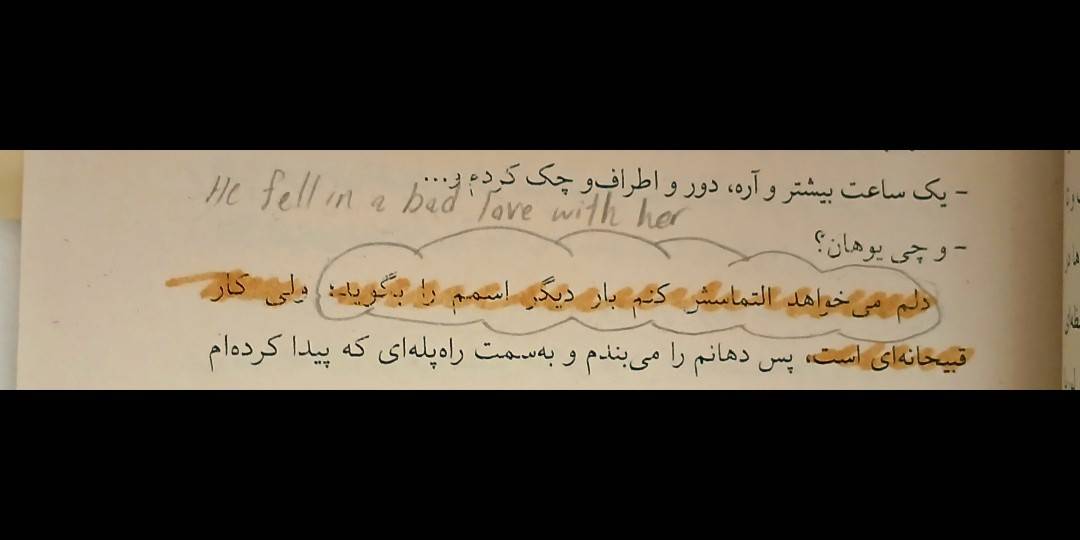 - یک ساعت بیشتر و آره، دور و اطراف‌و چک کردم و...
He fell in a bad love with her
- و چی یوهان؟
دلم می‌خواهد التماسش کنم بار دیگر اسمم را بگوید؛ ولی کار
قبیحانه‌ای است، پس دهانم را می‌بندم و به‌سمت راه‌پله‌ای که پیدا کرده‌ام